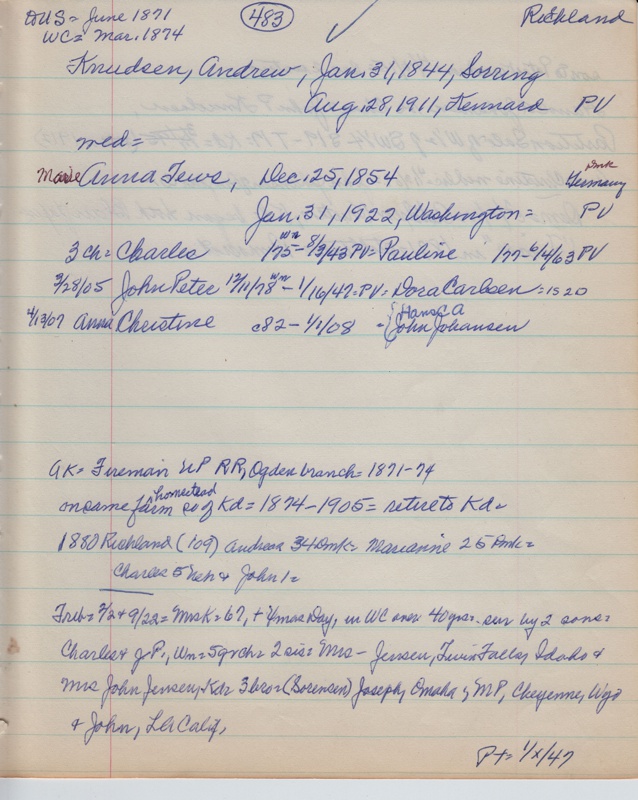 DUS = June 1871 483 Richland
WC = Mar. 1874
Knudsen, Andrew, Jan. 31, 1844, Sorring
Aug. 28, 1911, Kennard PV
med =
Marie Anna Tews, Dec. 25, 1854 Dmk Germany
Jan. 31, 1922, Washington = PV
3 ch = Charles 1/75 - 8/3/43 PV = Pauline 1/77 - 6/4/63 PV
3/28/05 John Peter 12/11/78 wn - 1/16/47 = PV = Dora Carlsen = 1520
4/13/07 Anna Christine c82 - 1/1/08 = { Hans CA
John Johansen
AK = Fireman UP RR, Ogden branch = 1871-74
on same farm homestead so of Kd = 1874-1905 = retire to Kd =
1880 Richland (109) Andreas 34 Dmk = Marianne 25 Dmk =
Charles 5 Neb & John 1 =
Trib = 2/2 & 9/22 = Mrs K = 67, + Xmas Day, in WC over 40 yrs - sur by 2 sons =
Charles & J.P., Wn = 5 grch = 2 sis = Mrs - Jensen, Twin Falls, Idaho &
Mrs John Jensen, Kd = 3 bro = (Sorensen) Joseph, Omaha, MP, Cheyenne, Wyo
& John, LA Calif,
Pt = 1/X/47